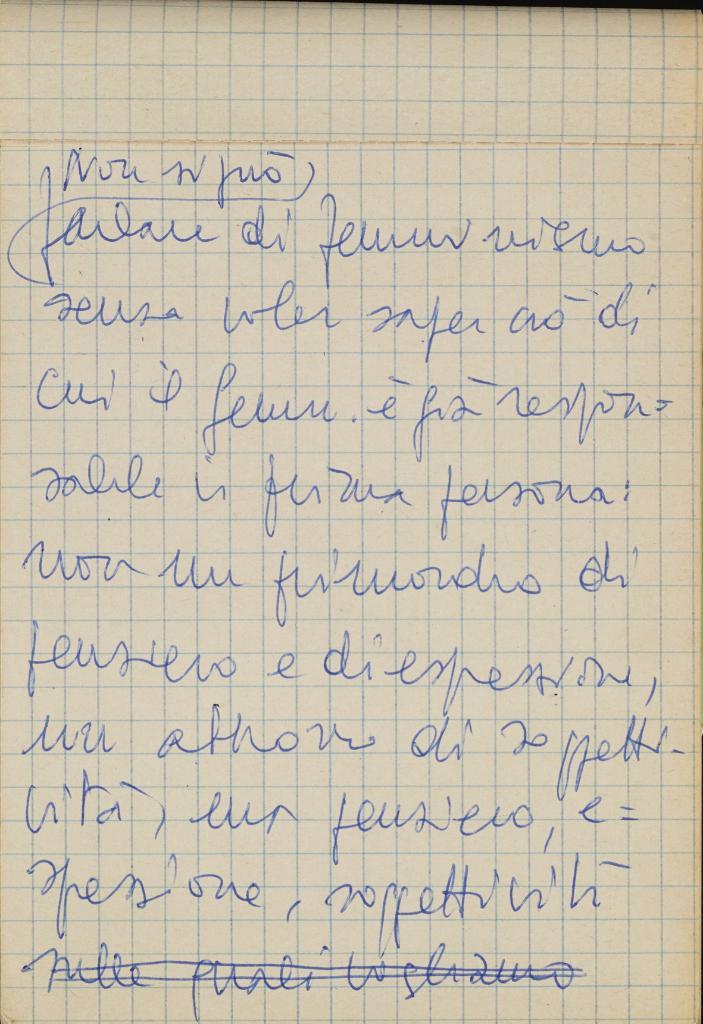 Non si può
parlare di femminismo
senza voler saper ciò di
cui il femm. è già respon=
sabile in prima persona:
non un primordio di
pensiero e di espressione,
un abbozzo di soggetti-
vità, ma pensiero, e=
spressione, soggettività
sulle quali vogliamo